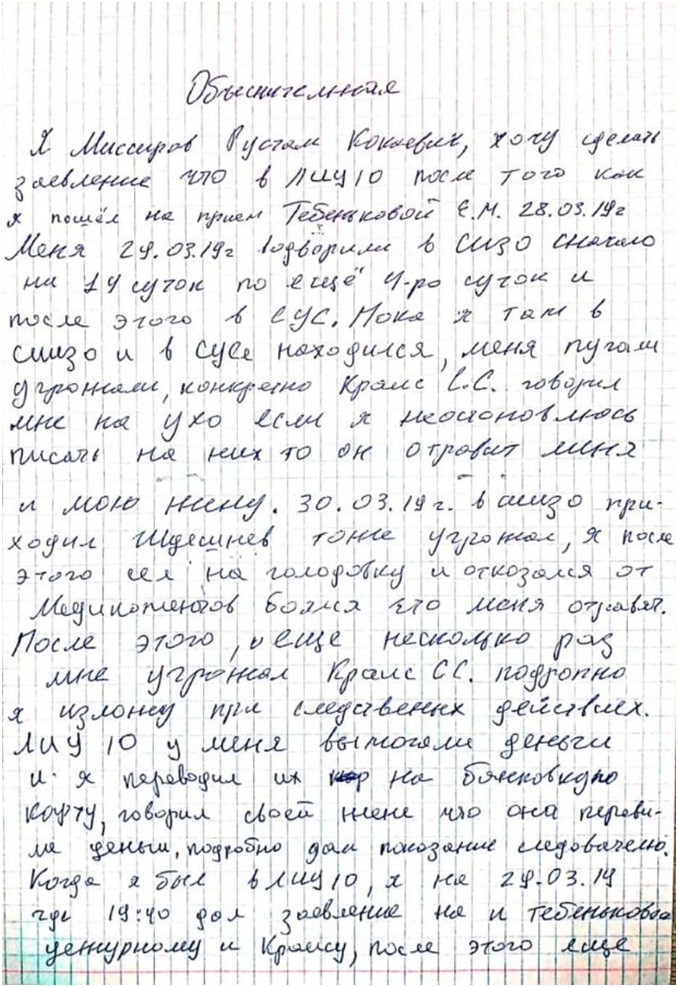 Объяснительная
Я Миссиров Рустам Кокаевич, хочу сделать
заевление что в ЛИУ10 после того как
я пошёл на прием Тебеньковой Е.М. 28.03.19г
Меня 29.03.19г водворили в сизо сначало
на 14 суток по ещё 4-ро суток и
после этого в СУС. Пока я там в
сшизо и в сусе находился, меня пугали
угрожали, конкретно Краис С.С. говорил
мне на ухо если я неостоновлюсь
писать на них то он отравит меня
и мою жену. 30.03.19г. в шизо при-
ходил Щдешнев тоже угрожал, я после
этого сел на голодовку и откозался от
Медикоментов боялся что меня отравят.
После этого, и еще несколько раз
мне угрожал Краис СС. подропно
я изложу при следственых действиех.
ЛИУ 10 у меня вымогали деньги
и я переводил их на банковкую
карту, говорил своей жене что она переви-
ла деньги, подробно дам показание следователю.
Когда я был в ЛИУ10, я на 29.03.19
где 19:40 дал заевление на и Тебенькова
дежурному и Краису, после этого еще